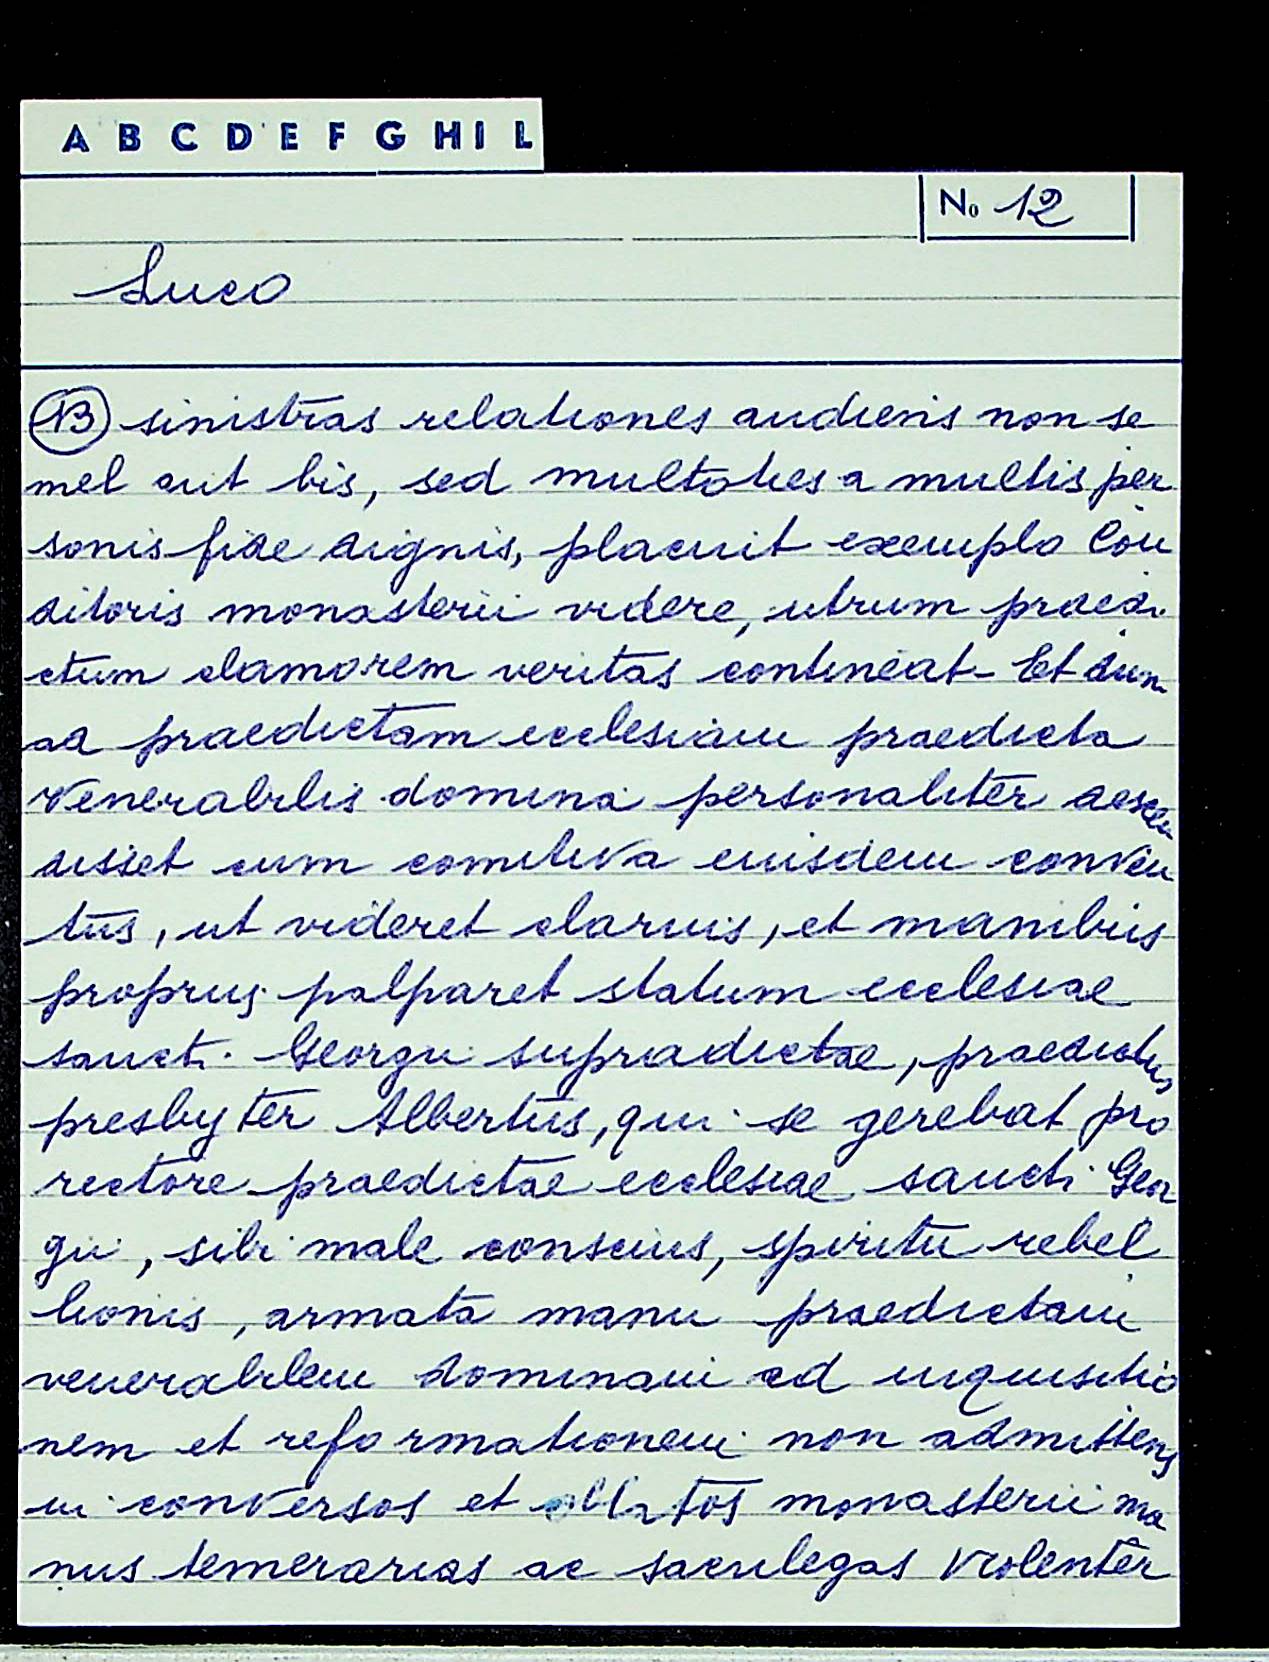 A B C D E F G H I L
No 12
Luco
13 sinistras relationes audiens non se
mel aut bis, sed multoties a multis per
sonis fide dignis, placuit exemplo Con
ditoris monasterii videre, utrum praedi
ctum clamorem veritas contineat. Et dum
ad praedictam ecclesiam praedicta
venerabilis domina personaliter descen
disset cum comitiva eiusdem conven
tus, ut videret clarius, et manibus
propriis palparet statum ecclesiae
sancti Georgii supradictae, praedictus
presbyter Albertus, qui se gerebat pro
rectore praedictae ecclesiae sancti Geor
gii, sibi male conscius, spiritu rebel
lionis, armata manu praedictam
venerabilem dominam ad inquisitio
nem et reformationem non admittens
in conversos et oblatos monasterii ma
nus temerarias ac sacrilegas violenter